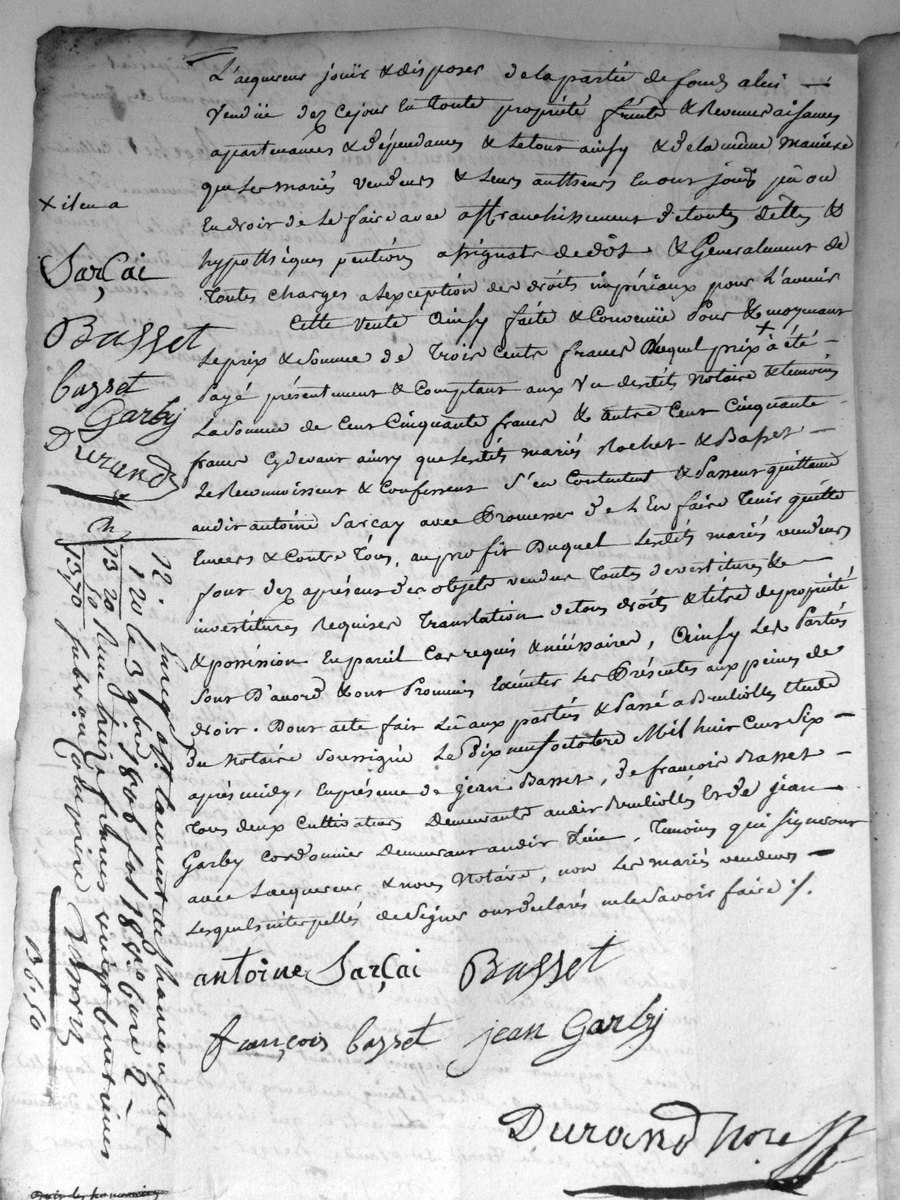 L'acquereur jouir & disposer de la partie de fonds a lui
Vendüe dez ce jour en toute propriété fruits & Revenus aisances
appartenances & dépendances & le tout ainsy & de la même maniere
que les mariés vendeurs & leurs autheurs en ont joui pû ou
en droit de le faire avec affranchissement de toutes dettes &
hypothèques pentions assignats de dôt & Generalement de
toutes charges a lexception des droits impériaux pour l'avenir
Cette Vente Ainsy faite & Convenüe pour & moyenant
Le prix & Somme de Trois Cents francs duquel prix + à été
payé présentement & Comptant aux Vu desdits Notaire & temoins
La Somme de Cent Cinquante francs & autre Cent Cinquante
francs cydevant ainsy que lesdits mariés Rochet & Basset
Le Reconnoissent & Confessent S'en Contentent & Passent quittance
audit antoine Sarcay avec Promesse de l'En faire Tenir quitte
Envers & Contre Tous, au profit Duquel lesdits mariés vendeurs
sont dez aprésent des objets vendus Toutes devestitures &
investitures Requises Translation de tous droits & titre de propriété
& possession En pareil Cas requis & nécéssaire, Ainsy Les Parties
Sont D'accord & ont Promis Exécuter Les Présentes aux peines de
droit. Dont acte fait Lû aux parties & Passé a Etude
du Notaire Soussigné Le Dix neuf octobre Mil huit Cent Six
après midy, En présence de jean Basset, de françois Basset
Tous deux Cultivateurs Demeurants audit Et de jean
Garby Cordonnier Demeurant audit Lieu, Temoins qui signeront
avec Lacquereur & nous Notaire, non les mariés vendeurs
Lesquels interpellés de Signer ont declarés ne le Savoir faire ./.
antoine Sarçai Basset
françois basset jean Garby
Durand Nore
+ il en a
Sarçai
Basset
basset
Garby
Durand
12.
1 20
13 20
1370
le 3 9bre 1806 fol 18
Reçu treize francs vingt
Subvon Comprise